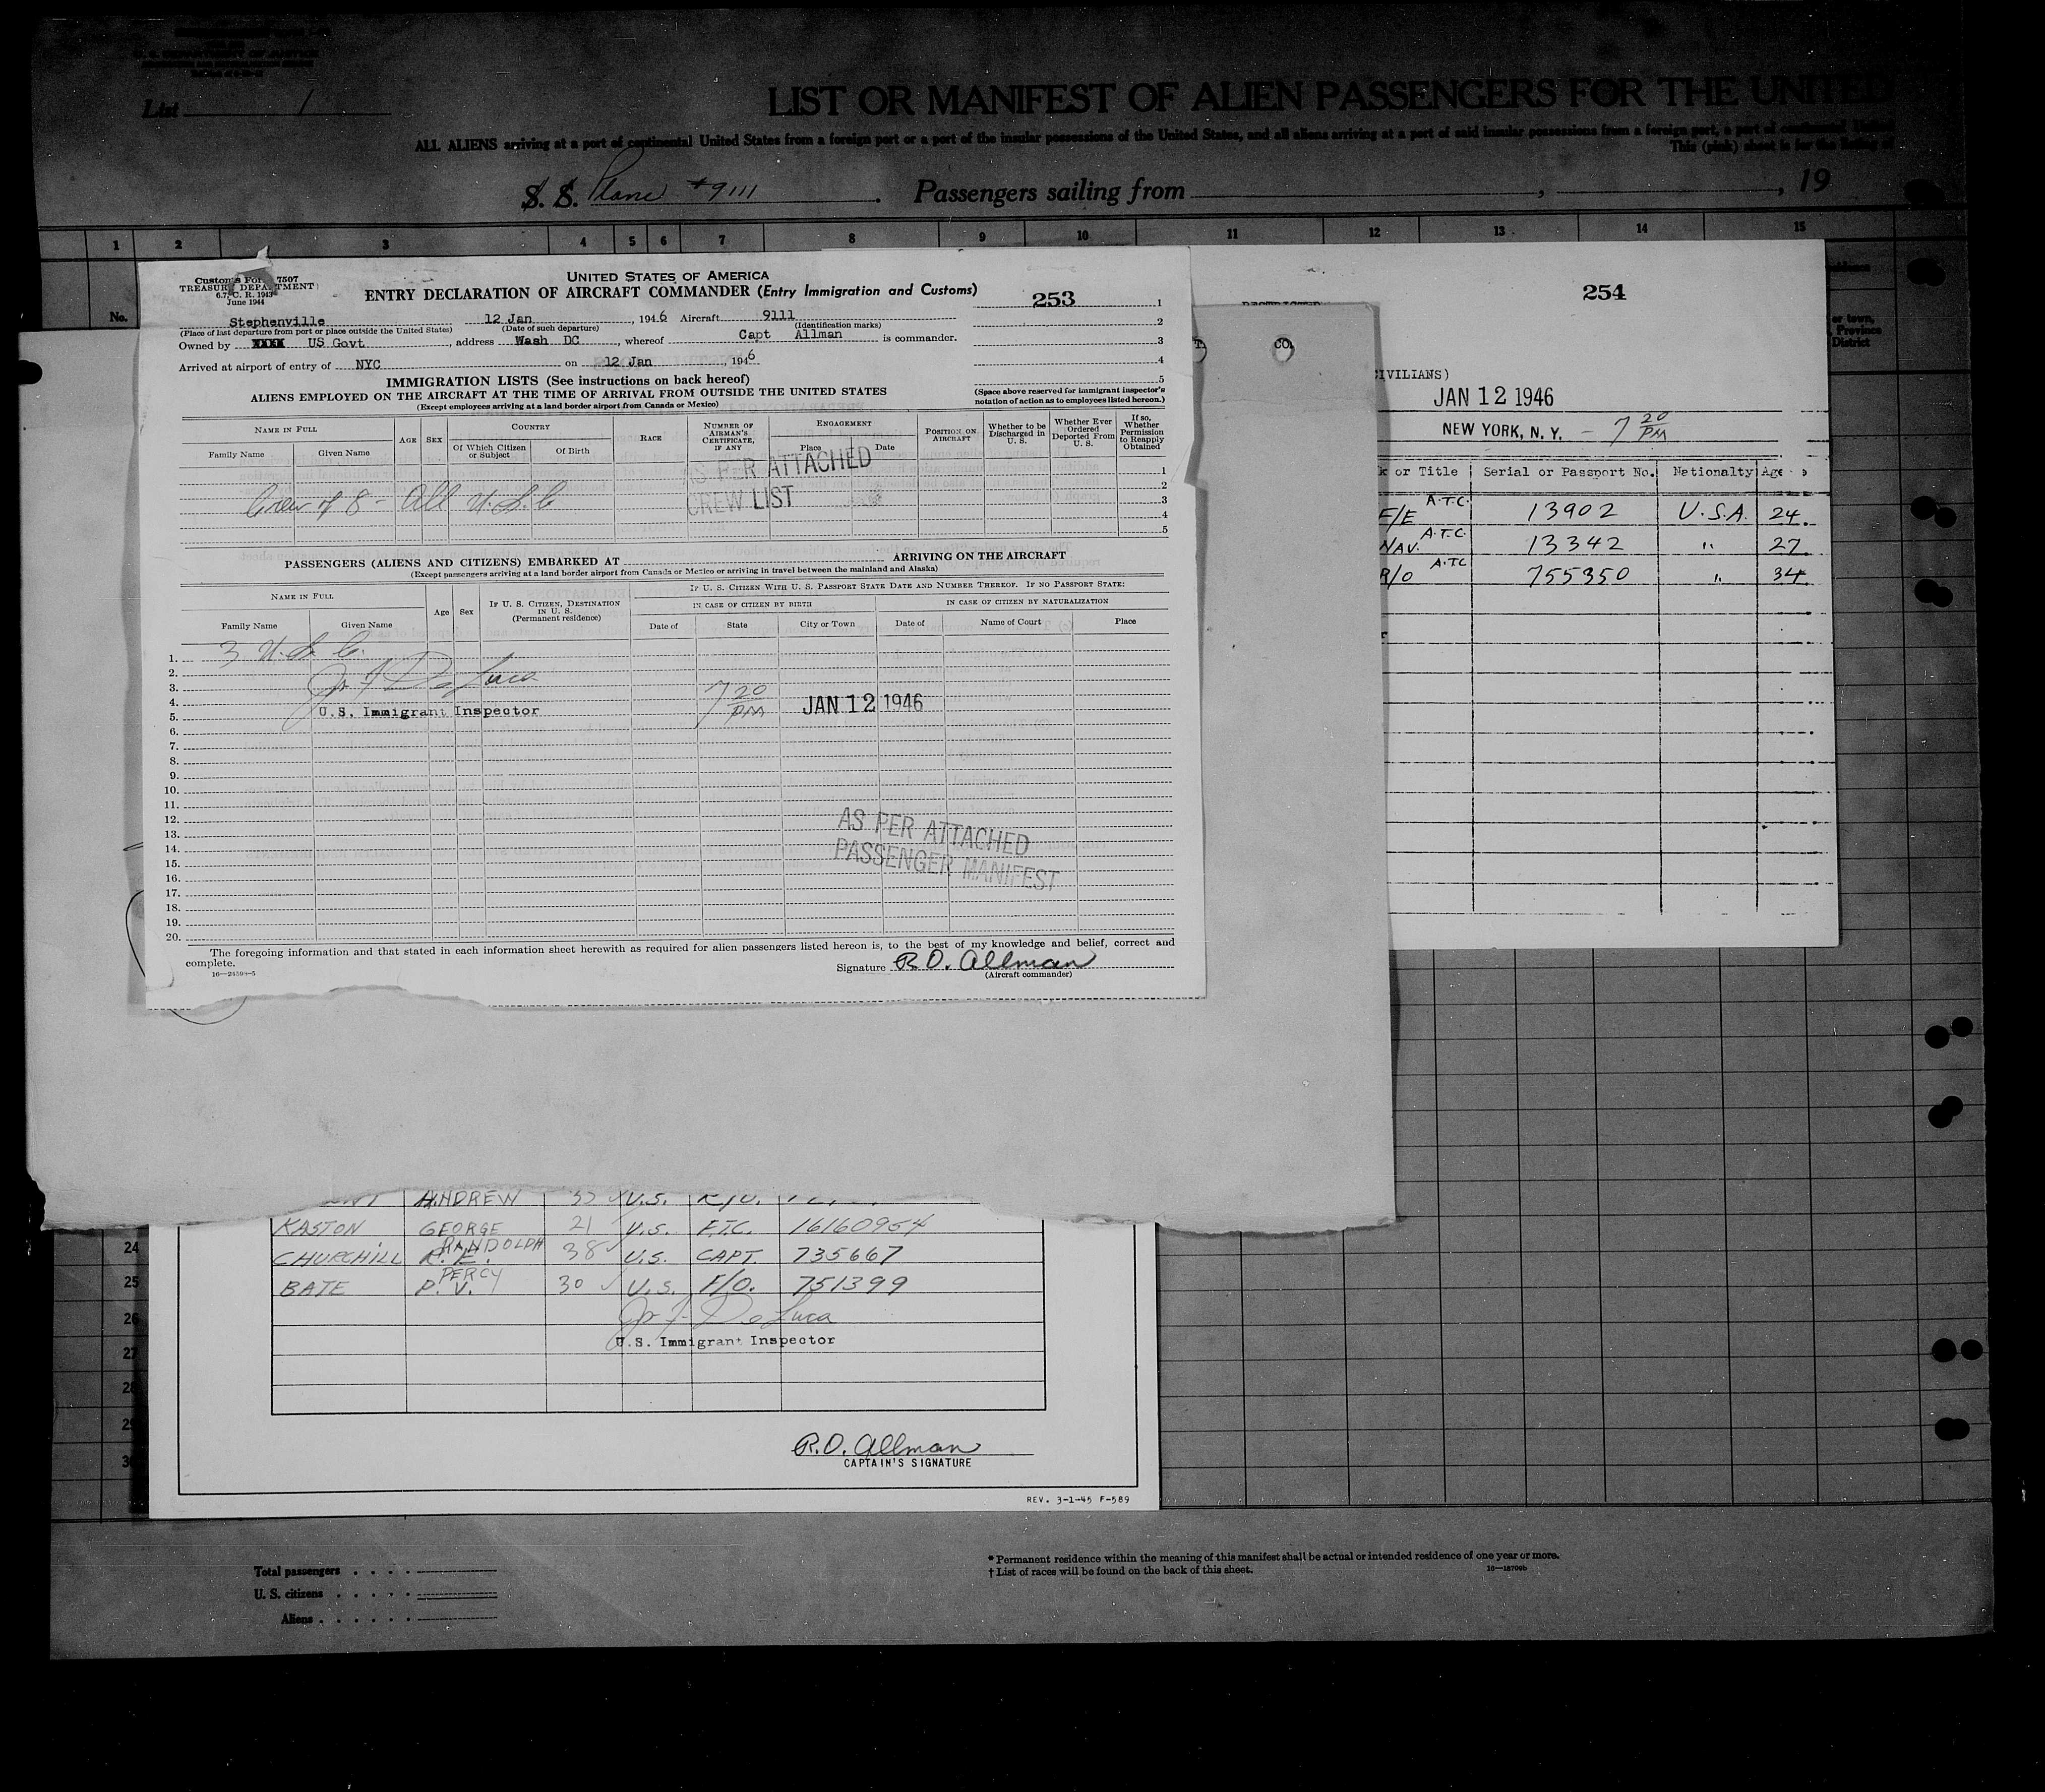 U. S. DEPARTMENT OF JUSTICE
List 1
LIST OR MANIFEST OF ALIEN PASSENGERS FOR THE UNITED
ALL ALIENS arriving at a port of continental United States from a foreign port or a port of the insular possessions of the United States, and all aliens arriving at a port of said insular possessions from a foreign port, a port of continental United
This (pink) sheet is for the listing of
S. S. Plane #9111. Passengers sailing from , , 19
1 2 3 4 5 6 7 8 9 10 11 12 13 14 15
No.
Customs Form 7507
TREASURY DEPARTMENT
6.7, C. R. 1943
June 1944
UNITED STATES OF AMERICA
ENTRY DECLARATION OF AIRCRAFT COMMANDER (Entry Immigration and Customs)
253
Stephenville 12 Jan, 1946 Aircraft 9111
(Place of last departure from port or place outside the United States) (Date of such departure) (Identification marks)
Owned by XXXX US Govt, address Wash DC, whereof Capt Allman is commander.
Arrived at airport of entry of NYC on 12 Jan, 1946
1
2
3
4
5
(Space above reserved for immigrant inspector's
notation of action as to employees listed hereon.)
IMMIGRATION LISTS (See instructions on back hereof)
ALIENS EMPLOYED ON THE AIRCRAFT AT THE TIME OF ARRIVAL FROM OUTSIDE THE UNITED STATES
(Except employees arriving at a land border airport from Canada or Mexico)
NAME IN FULL
Family Name Given Name
AGE SEX
COUNTRY
Of Which Citizen or Subject Of Birth
RACE
NUMBER OF AIRMAN'S CERTIFICATE, IF ANY
ENGAGEMENT
Place Date
POSITION ON AIRCRAFT
Whether to be Discharged in U. S.
Whether Ever Ordered Deported From U. S.
If so, Whether Permission to Reapply Obtained
AS PER ATTACHED
CREW LIST
Crew of 8 - All U.S.C
1
2
3
4
5
PASSENGERS (ALIENS AND CITIZENS) EMBARKED AT ARRIVING ON THE AIRCRAFT
(Except passengers arriving at a land border airport from Canada or Mexico or arriving in travel between the mainland and Alaska)
NAME IN FULL
Family Name Given Name
Age Sex
IF U. S. CITIZEN, DESTINATION IN U. S. (Permanent residence)
IF U. S. CITIZEN WITH U. S. PASSPORT STATE DATE AND NUMBER THEREOF. IF NO PASSPORT STATE:
IN CASE OF CITIZEN BY BIRTH IN CASE OF CITIZEN BY NATURALIZATION
Date of State City or Town Date of Name of Court Place
3 U.S.C.
1.
2.
3.
4.
5.
De Luca
U.S. Immigrant Inspector
7 20 PM JAN 12 1946
6.
7.
8.
9.
10.
11.
12.
13.
14.
15.
16.
17.
18.
19.
20.
AS PER ATTACHED
PASSENGER MANIFEST
The foregoing information and that stated in each information sheet herewith as required for alien passengers listed hereon is, to the best of my knowledge and belief, correct and
complete.
Signature R.O. Allman
(Aircraft commander)
T. CO.
RESTRICTED
254
CIVILIANS)
JAN 12 1946
NEW YORK, N. Y. - 7 20 PM
k or Title Serial or Passport No. Nationalty Age
F/E A.T.C. 13902 U.S.A. 24
NAV. A.T.C. 13342 " 27
R/O A.T.C 755350 " 34
or town,
Province
District
ANDREW U.S. R/O.
KASTON GEORGE 21 U.S. F.T.C. 16160954
CHURCHILL R.E. RANDOLPH 38 U.S. CAPT. 735667
BATE P.V. PERCY 30 U.S. F/O. 751399
De Luca
U.S. Immigrant Inspector
24
25
26
27
28
29
30
R.O. Allman
CAPTAIN'S SIGNATURE
REV. 3-1-45 F-589
Total passengers
U. S. citizens
Aliens
* Permanent residence within the meaning of this manifest shall be actual or intended residence of one year or more.
† List of races will be found on the back of this sheet.